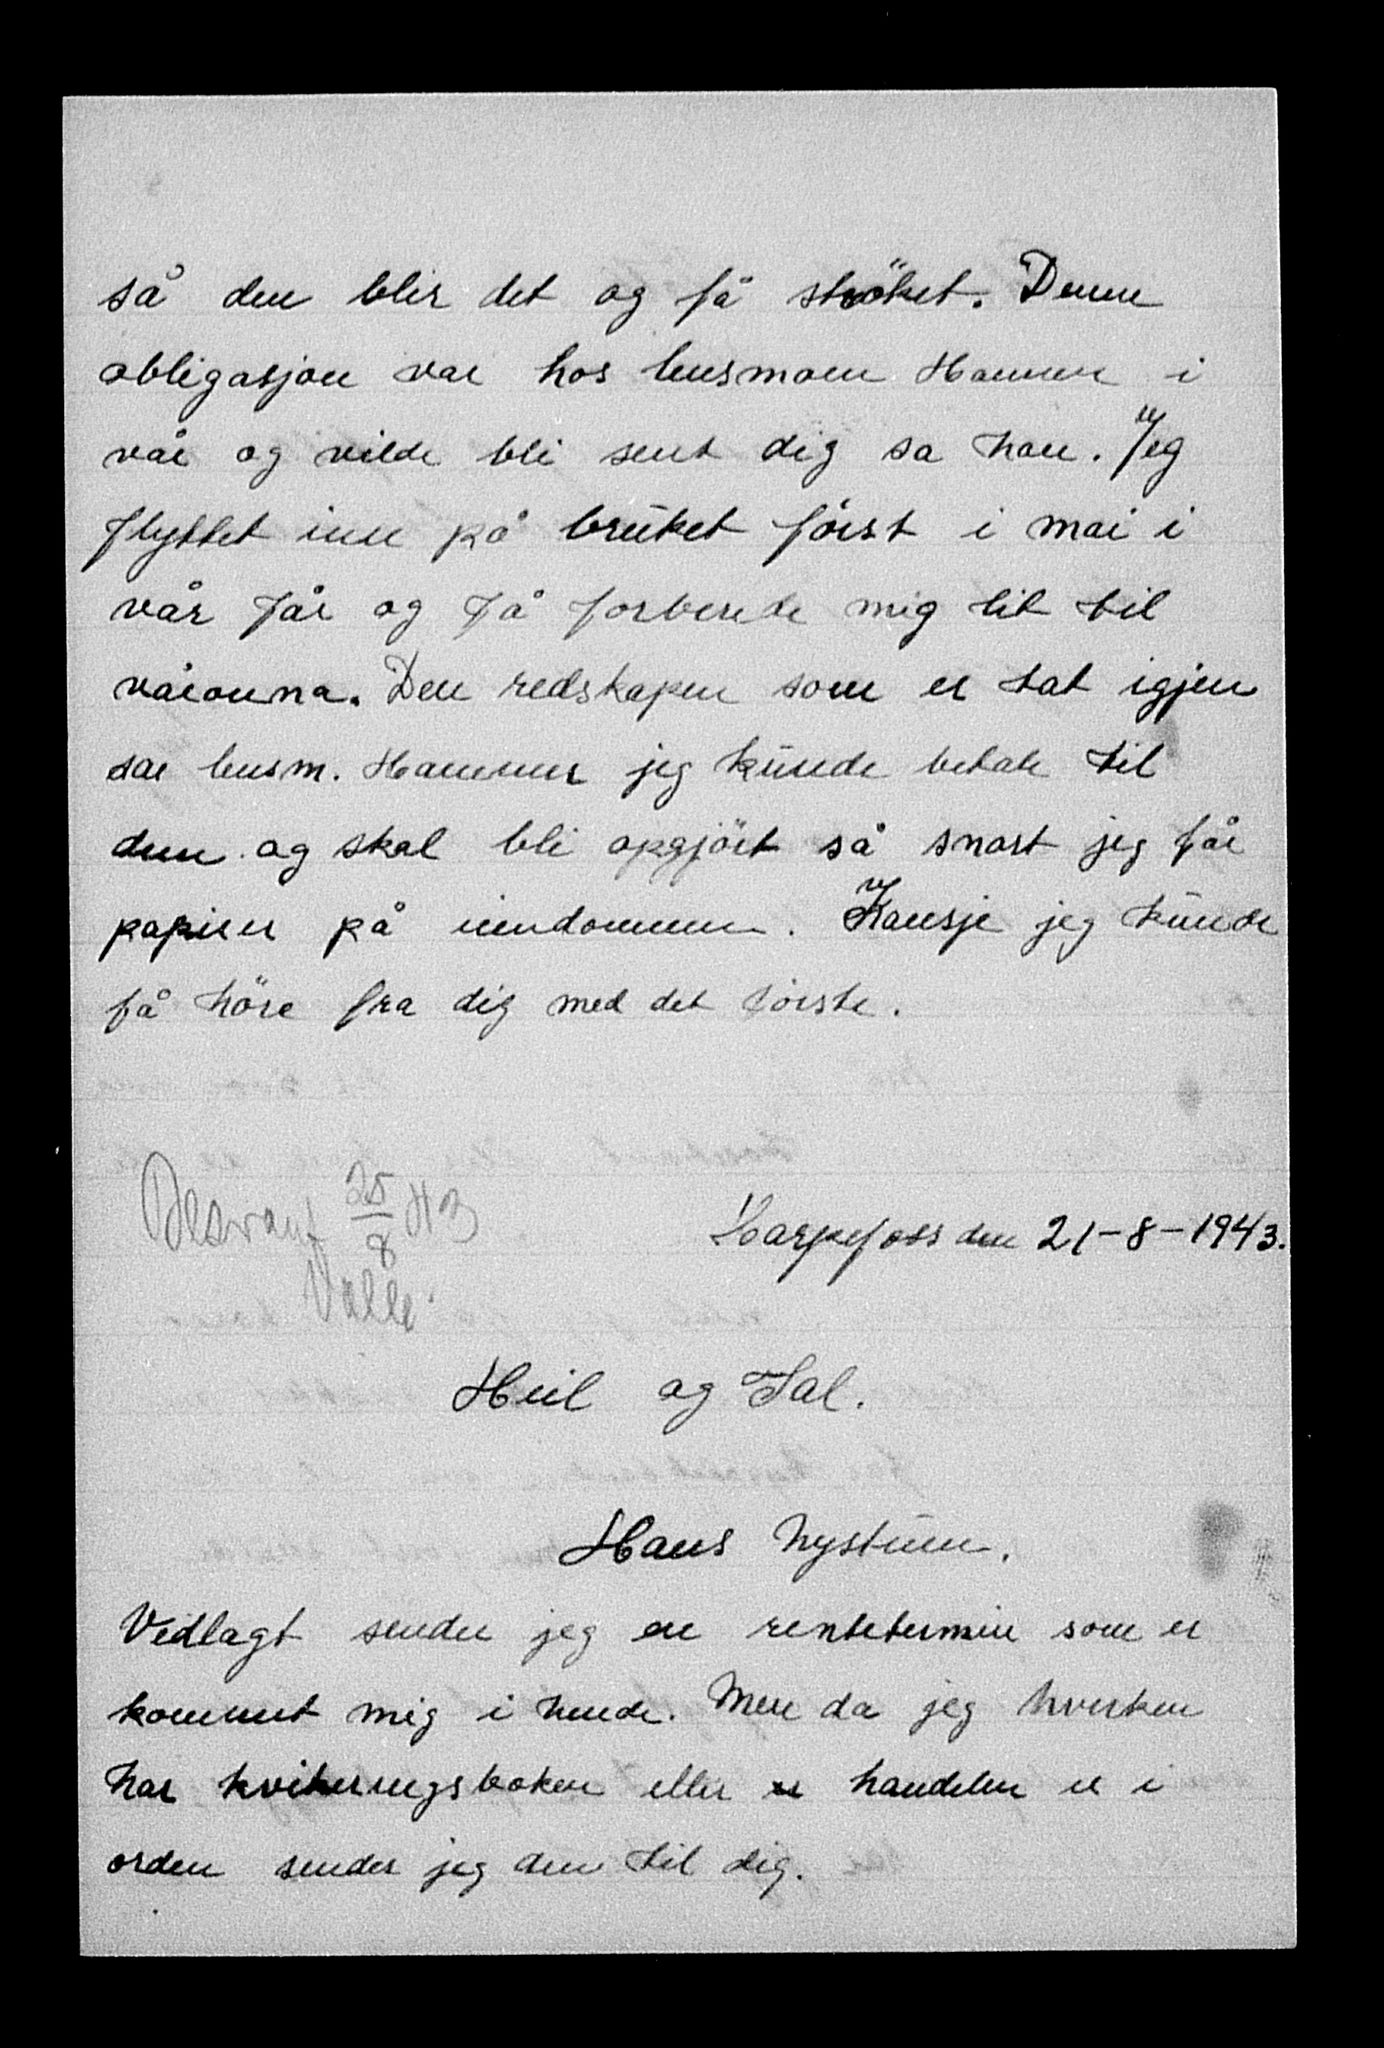 så den blir det og få ströket. Denne
obligasjon var hos lensmann Hammer i
vår og vilde bli sent dig sa han. Jeg
flyttet inn på brüket först i mai i
vår får og få forberede mig lit til
våronna. Den redskapen som er tat igjen
sae lensm. Hammer jeg künde betale til
dem og skal bli opgjört så snart jeg får
papirer på eiendommen. Kansje jeg künde
få höre fra dig med det förste.
Besvart 25/8 43
Valle
Harpefoss den 21-8-1943.
Heil og Sæl.
Hans Nystüen.
Vedlagt sender jeg en rentetermin som er
kommet mig i hende. Men da jeg hverken
har kviteringsboken eller er handelen er i
orden sender jeg den til dig.